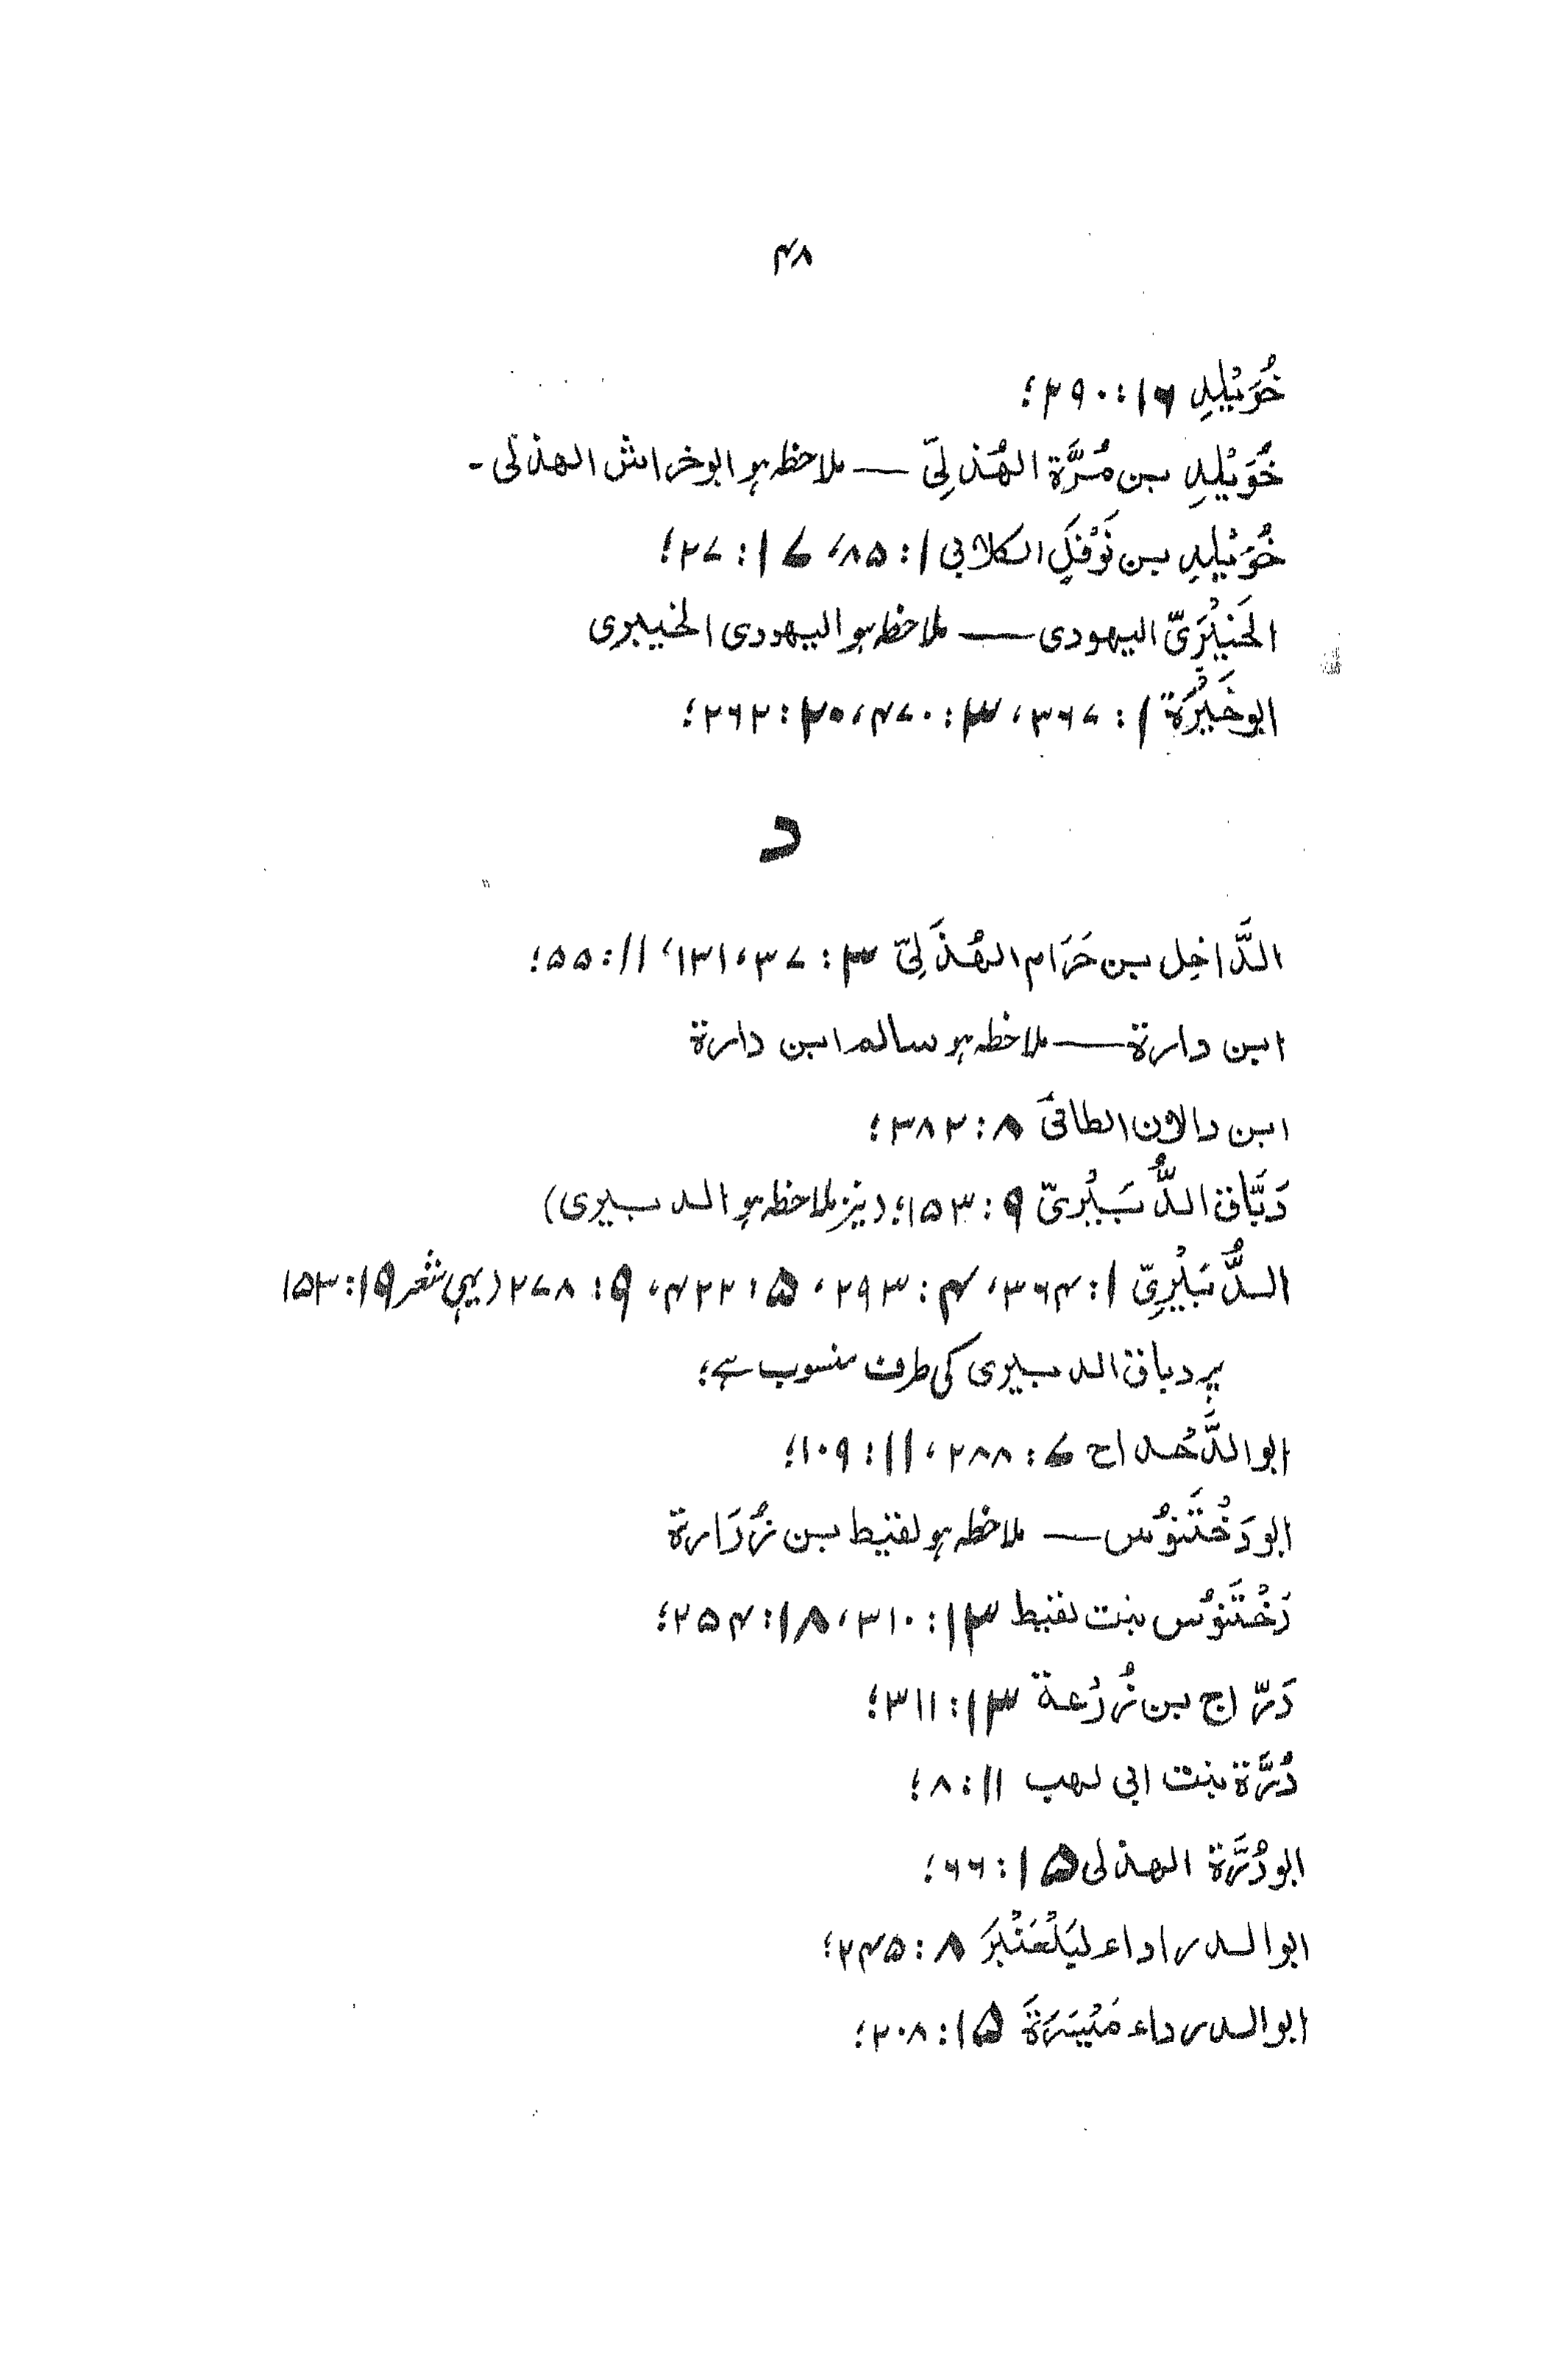 ۴۸
خُوَيْلِد ۱۶: ۲۹۰؛
خُوَيْلِد بن مُرَّة الهُذلِیّ — ملاحظہ ہو ابوخراش الهذلی -
خُوَيْلِد بن نَوْفَل الکلابی ۱: ۸۵، ۱۷: ۲۷؛
الخَيْبَرِیّ الیهودی — ملاحظہ ہو الیهودی الخیبری
ابوخَيْرَة ۱: ۳۶۷، ۳: ۴۷۰، ۲۰: ۲۶۲؛
د
الدَّاخِل بن حَرَام الهُذَلِیّ ۳: ۳۷، ۱۳۱، ۱۱: ۵۵؛
ابن دارة — ملاحظہ ہو سالم ابن دارة
ابن دالان الطائی ۸: ۳۸۲؛
دَبَّاق الدُّبَيْرِیّ ۹: ۱۵۳؛ (نیز ملاحظہ ہو الدبیری)
الدُّبَيْرِیّ ۱: ۳۶۴، ۴: ۲۹۳، ۵: ۴۲۲، ۹: ۲۷۸ (یہی شعر ۱۹: ۱۵۳
پر دباق الدبیری کی طرف منسوب ہے؛
ابوالدَّحْداح ۷: ۲۸۸، ۱۱: ۱۰۹؛
ابودَخْتَنُوس — ملاحظہ ہو لقیط بن زُرَارة
دَخْتَنُوس بنت لقیط ۱۳: ۳۱۰، ۱۸: ۲۵۴؛
دَرّاج بن زُرْعة ۱۳: ۳۱۱؛
دُرَّة بنت ابی لهب ۱۱: ۸؛
ابودُرَّة الهذلی ۱۵: ۶۶؛
ابوالدراداء لِبَلْعَنْبَر ۸: ۲۴۵؛
ابوالدرداء مَيْسَرَة ۱۵: ۲۰۸؛